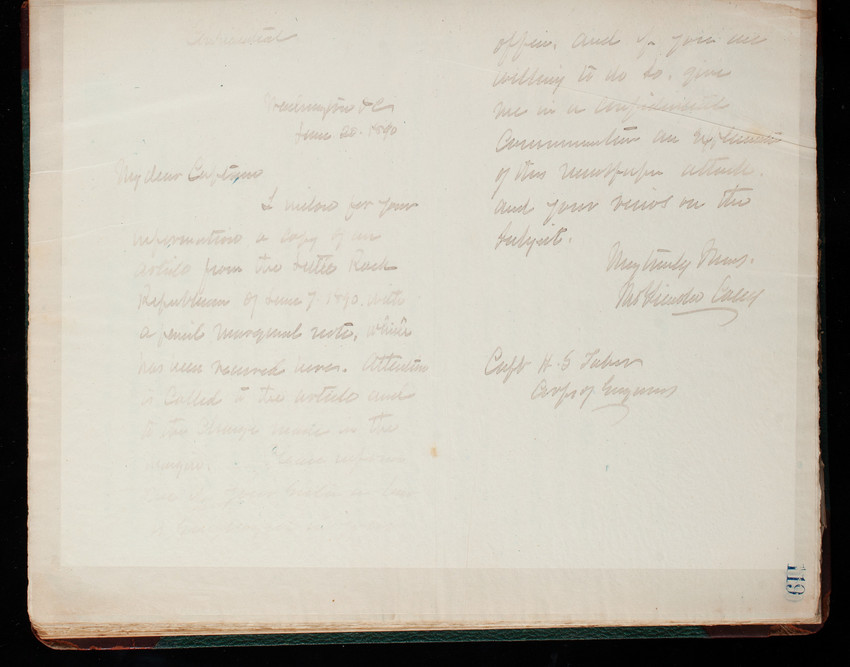 Confidential
Washington DC
June 20. 1890
My dear Captain
I enclose for your
information a copy of an
article from the Little Rock
Republican of June 7 1890. with
a pencil marginal note, which
has been received here. Attention
is called to the article and
to the charge made in the
margin. Please inform
me if your
office. and if you are
willing to do so. give
me in a confidential
communication an explanation
of this newspaper attack.
and your views on the
subject.
Very truly yours.
Thos Lincoln Casey
Capt H. S. Taber
Corps of Engineers
119